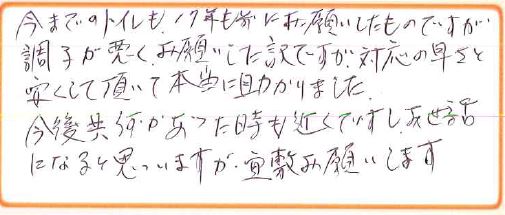 今までのトイレも、17年も前にお願いしたものですが
調子が悪く、お願いした訳ですが対応の早さと
安くして頂いて本当に助かりました。
今後共何かあった時も近くですし、お世話
になると思っていますが、宜敷お願いします